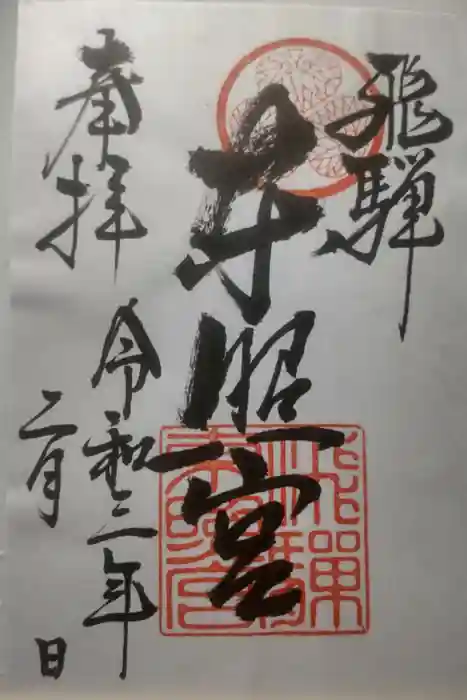 飛騨
東照宮
奉拝
令和三年
二月 日
飛騨東照宮